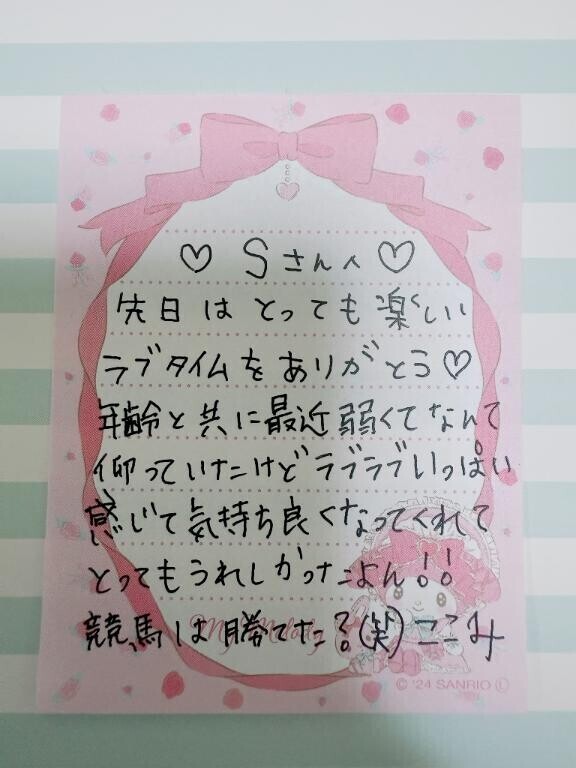 ♡ Sさんへ ♡
先日はとっても楽しい
ラブタイムをありがとう♡
年齢と共に最近弱くてなんて
仰っていたけどラブラブいっぱい
感じて気持ち良くなってくれて
とってもうれしかったよん!!
競馬は勝てた?(笑)ここみ
My Melody
© '24 SANRIO Ⓛ